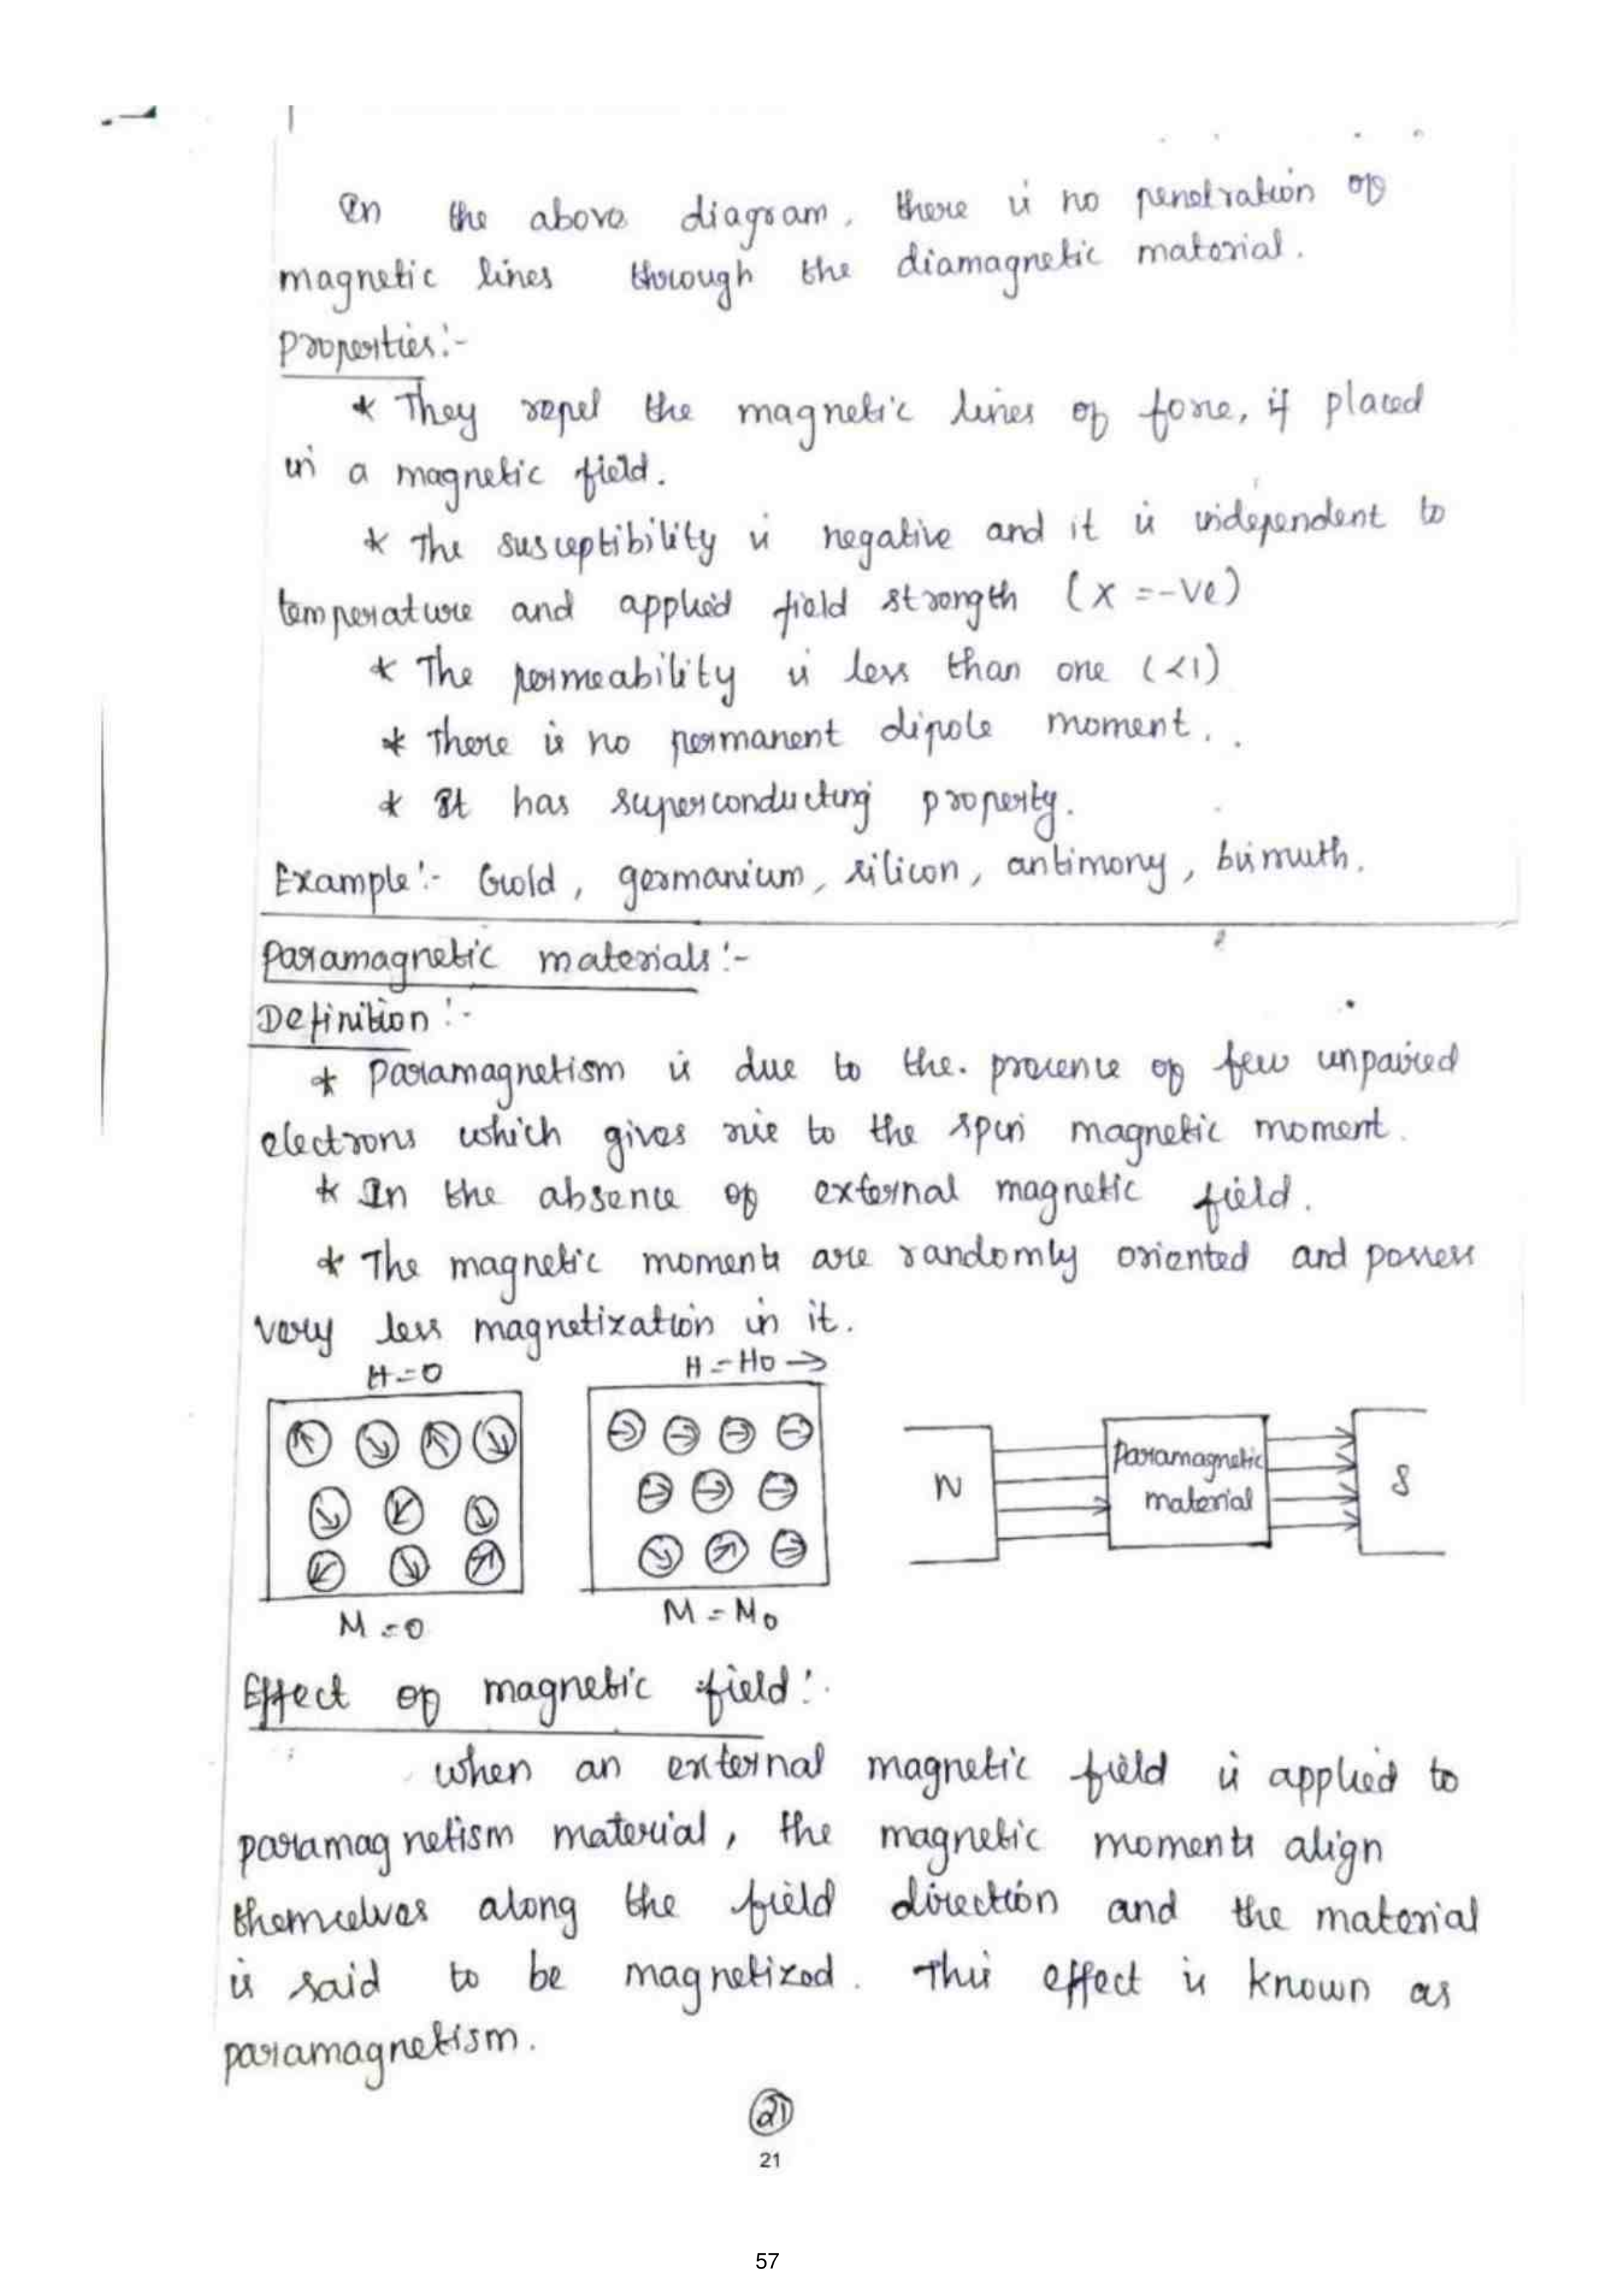 In the above diagram, there is no penetration of
magnetic lines through the diamagnetic material.
Properties:-
* They repel the magnetic lines of force, if placed
in a magnetic field.
* The susceptibility is negative and it is independent to
temperature and applied field strength (χ = -ve)
* The permeability is less than one (<1)
* There is no permanent dipole moment.
* It has superconducting property.
Example:- Gold, germanium, silicon, antimony, bismuth.
Paramagnetic materials:-
Definition:-
* Paramagnetism is due to the presence of few unpaired
electrons which gives rise to the spin magnetic moment.
* In the absence of external magnetic field.
* The magnetic moments are randomly oriented and possess
very less magnetization in it.
H=0
H=H0 →
N
paramagnetic
material
S
M=0
M=M0
Effect of magnetic field:-
when an external magnetic field is applied to
paramagnetism material, the magnetic moments align
themselves along the field direction and the material
is said to be magnetized. This effect is known as
paramagnetism.
21
21
57